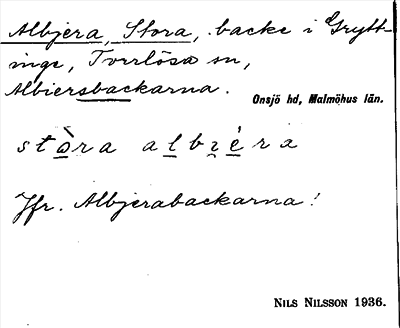 Albjera, Stora, backe i Grytt-
inge, Torrlösa sn,
Albiersbackarna.
Onsjö hd, Malmöhus län.
stòra albéra
Jfr. Albjerabackarna!
NILS NILSSON 1936.